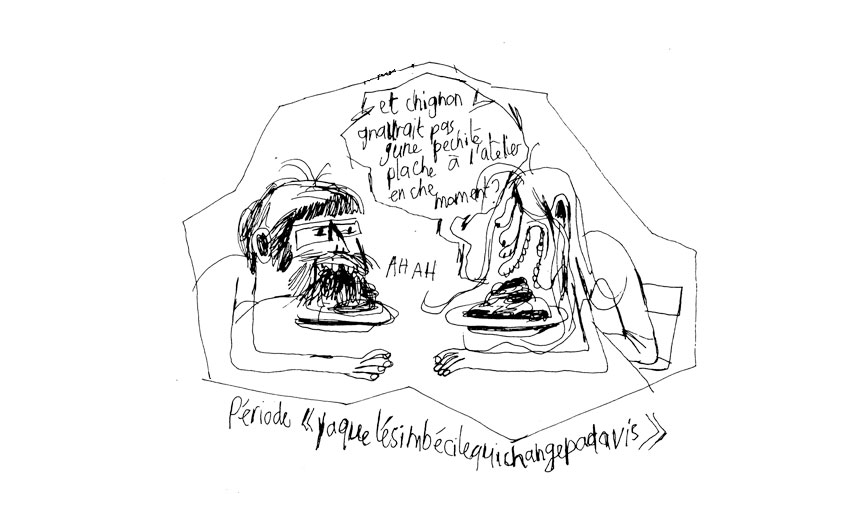 et chignon
gnaurait pas
zune pechite
plache à l'atelier
en che moment?
AH AH
Période «yaquelésimbécilequichangepadavis»